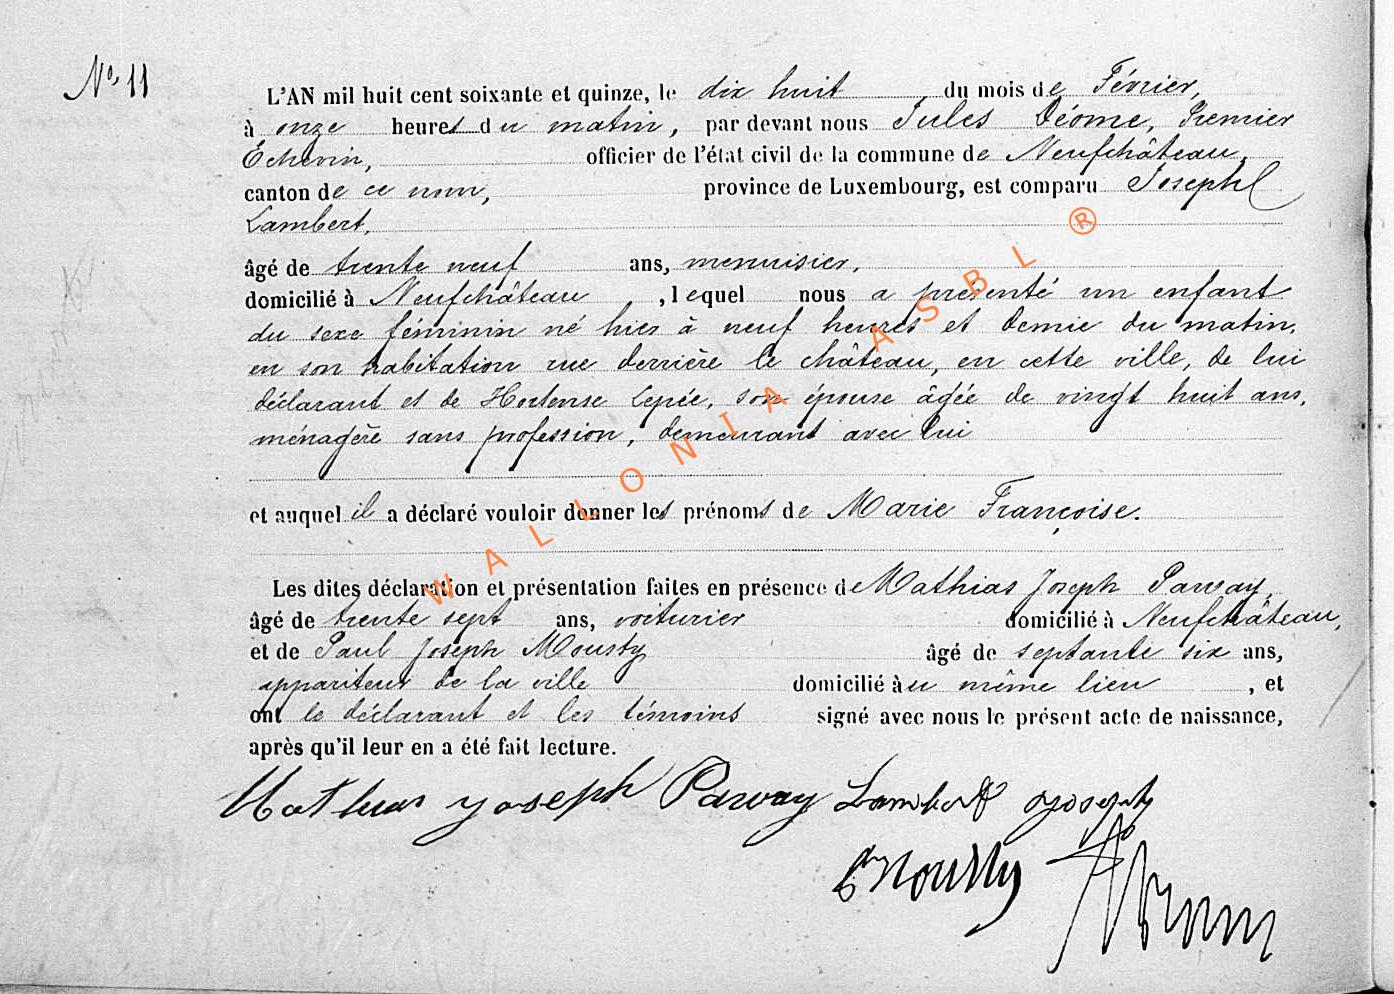 No 11
L'AN mil huit cent soixante et quinze, le dix huit du mois de Février,
à onze heures du matin, par devant nous Jules Déome, Premier
Échevin, officier de l'état civil de la commune de Neufchâteau,
canton de ce nom, province de Luxembourg, est comparu Joseph
Lambert,
âgé de trente neuf ans, menuisier,
domicilié à Neufchâteau, lequel nous a présenté un enfant
du sexe féminin né hier à neuf heures et demie du matin,
en son habitation rue derrière le château, en cette ville, de lui
déclarant et de Hortense Lepée, son épouse âgée de vingt huit ans,
ménagère sans profession, demeurant avec lui
et auquel il a déclaré vouloir donner les prénoms de Marie Françoise.
Les dites déclaration et présentation faites en présence de Mathias Joseph Parvay,
âgé de trente sept ans, voiturier domicilié à Neufchâteau,
et de Paul Joseph Mousty âgé de septante six ans,
appariteur de la ville domicilié au même lieu, et
ont le déclarant et les témoins signé avec nous le présent acte de naissance,
après qu'il leur en a été fait lecture.
Mathias Joseph Parvay Lambert Joseph
Mousty
WALLONIA ASBL ®